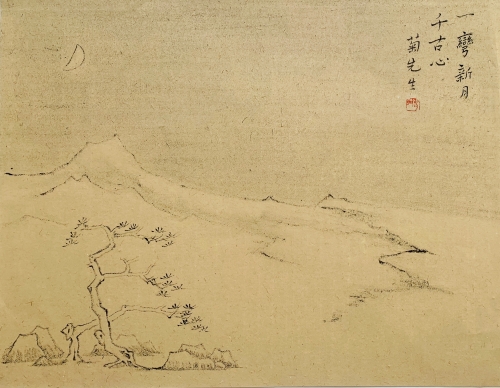 一彎新月
千古心
菊先生